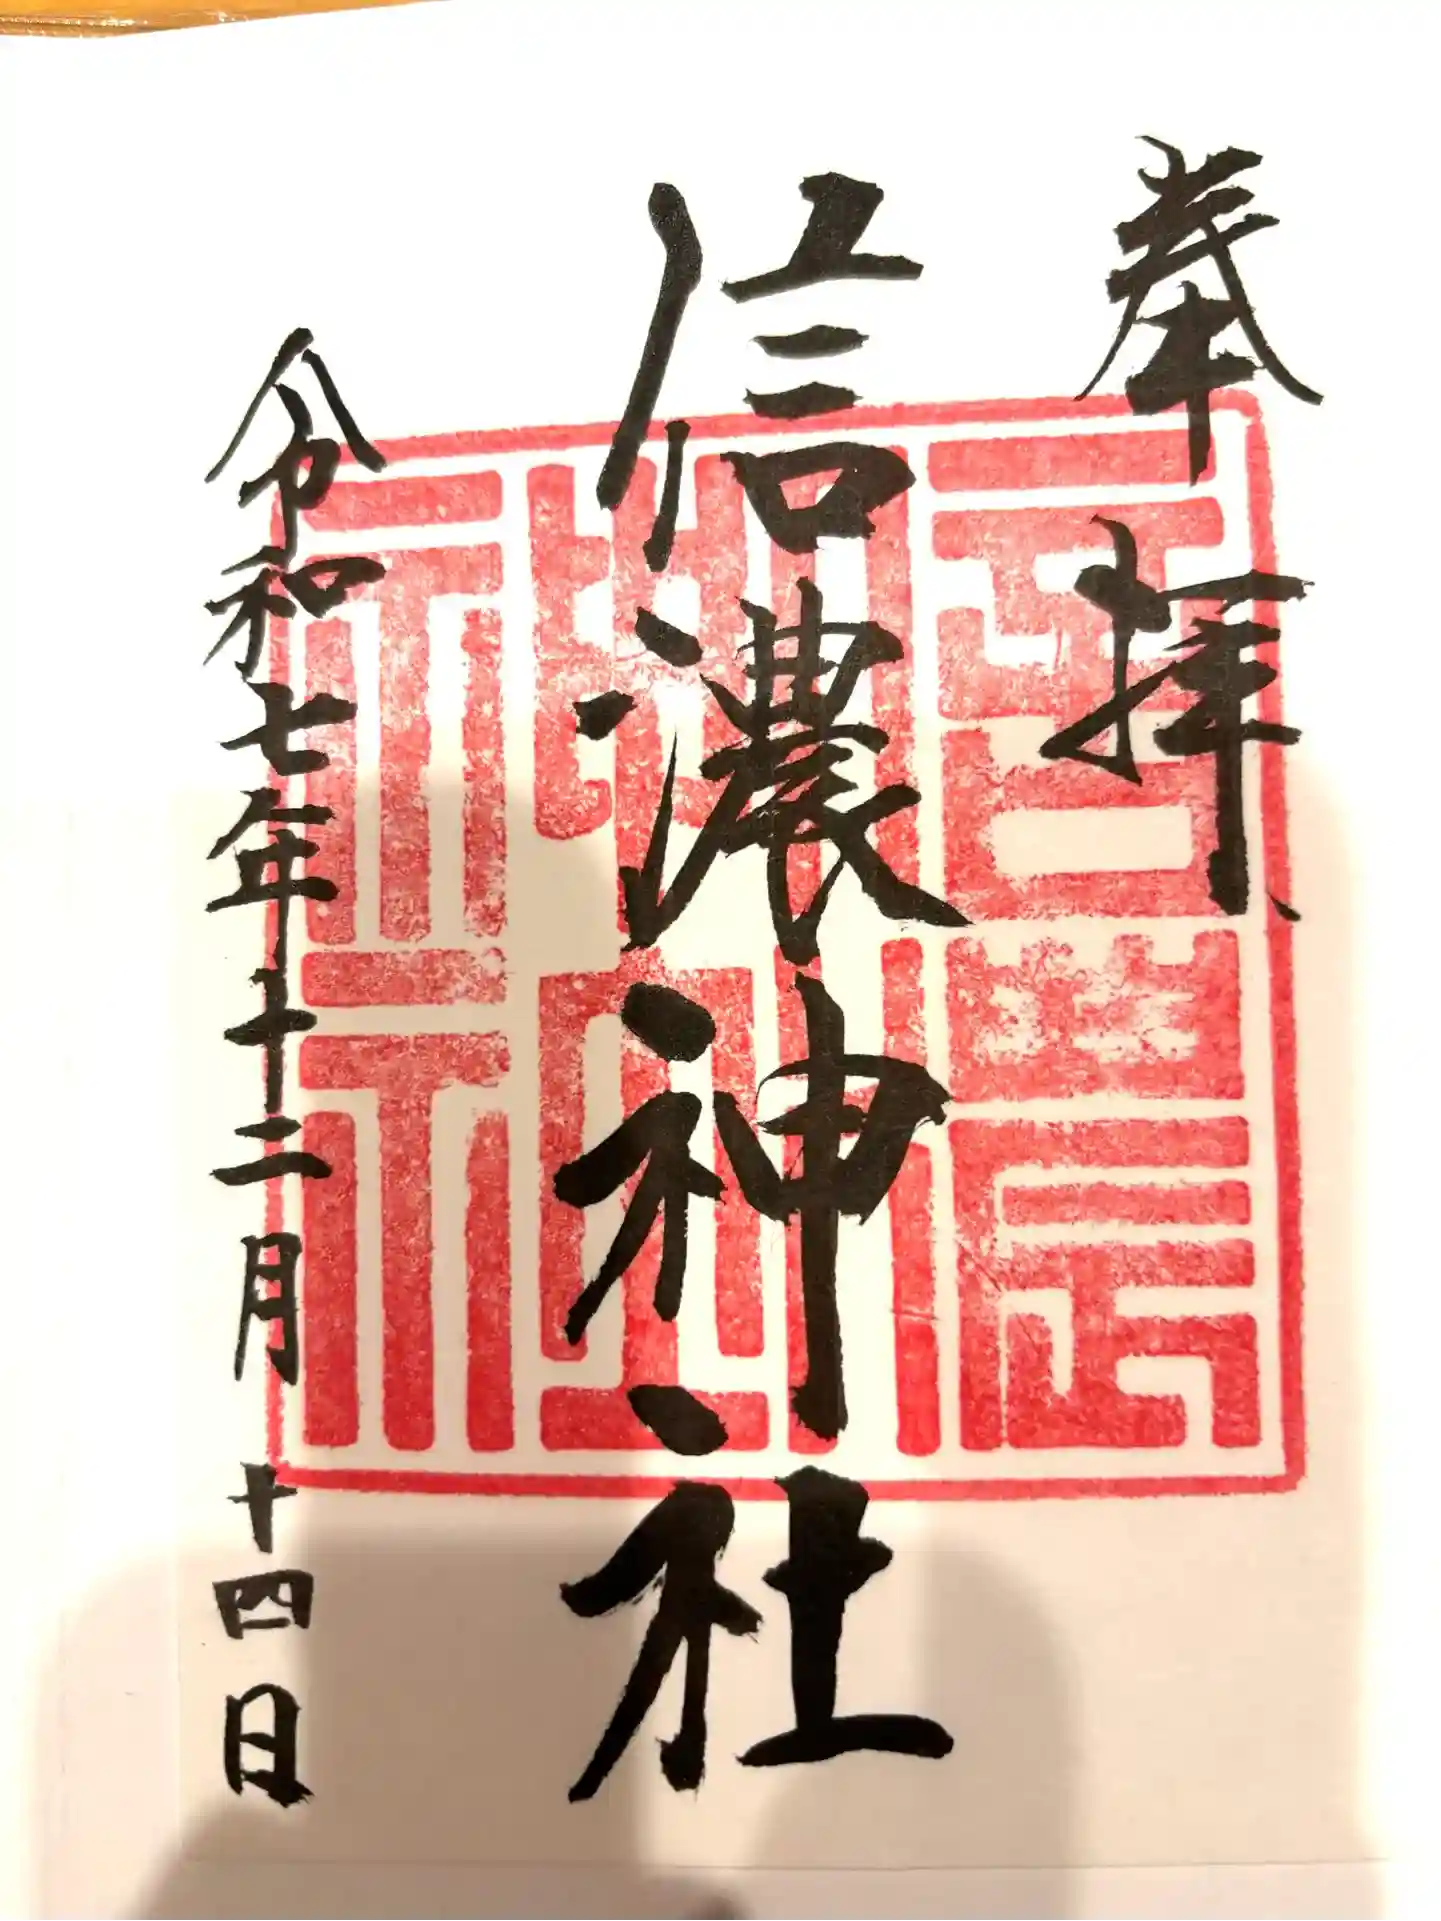 奉拝
信濃神社
令和七年十二月十四日